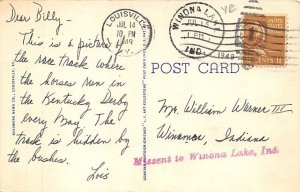 Dear Billy-
This is a picture of
the race track where
the horses run in
the Kentucky Derby
every May. The
track is hidden by
the bushes.
Lois
LOUISVILLE
JUL 14
10 PM
1949
KY.
WINONA LA
JUL 15
1 PM
1949
IND.
POST CARD
Mr. William Werner III
Winamac, Indiana
Missent to Winona Lake, Ind.